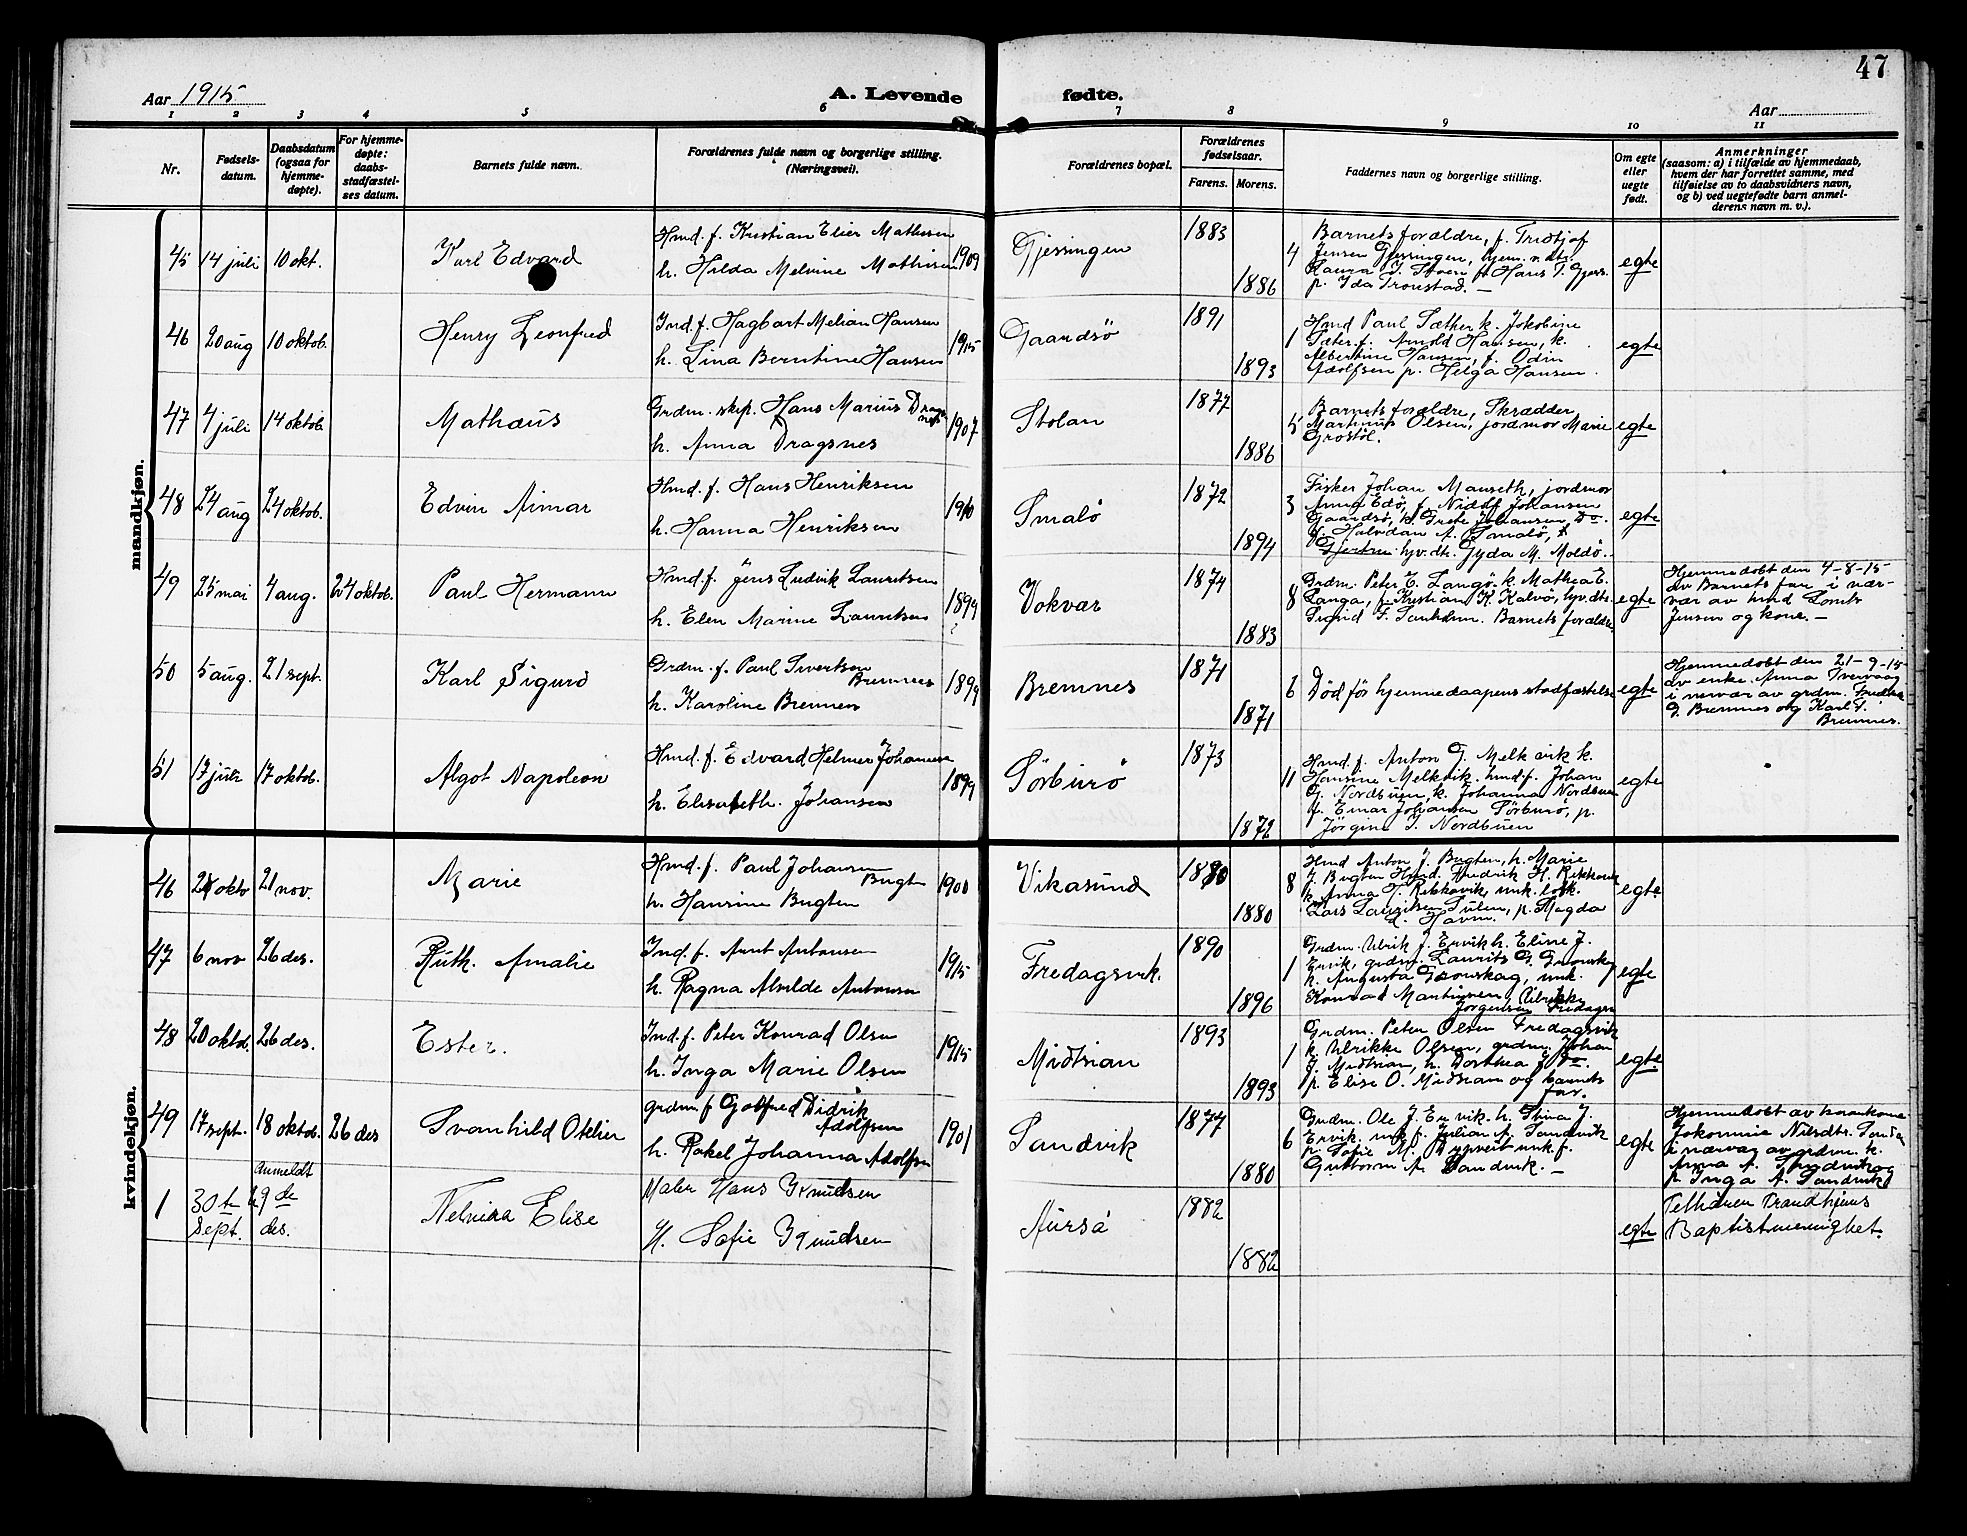 47
Aar 1915
A. Levende fødte.
Aar
1 2 3 4 5 6 7 8 9 10 11
Nr.
Fødsels-
datum.
Daabsdatum
(ogsaa for
hjemme-
døpte).
For hjemme-
døpte:
daabs-
stadfæstel-
ses datum.
Barnets fulde navn.
Forældrenes fulde navn og borgerlige stilling.
(Næringsvei).
Forældrenes bopæl.
Forældrenes
fødselsaar.
Farens. Morens.
Faddernes navn og borgerlige stilling.
Om egte
eller
uegte
født.
Anmerkninger
(saasom: a) i tilfælde av hjemmedaab,
hvem der har forrettet samme, med
tilføielse av to daabsvidners navn,
og b) ved uegtefødte barn anmel-
derens navn m. v.).
mandkjøn.
45 14 juli 10 okt. Karl Edvard
Hmd. f. Kristian Elier Mathisen
h. Hilda Melvine Mathisen 1909
Gjessingen 1883 1886
4 Barnets forældre, f. Tridtjof
Jensen Gjessingen, hjem. v. dtr.
Laura J. Stoen f. Hans J. Gjess.
p. Ida Tronstad. —
egte
46 20 aug 10 oktob. Henry Leonfred
Ind. f. Hagbart Melian Hansen
h. Lina Berntine Hansen 1915
Gaardsö 1891 1893
1 Hmd Paul Sæther k. Jokobine
Sæter. f. Arnold Hansen, k.
Albertine Hansen, f. Odin
Adolfsen p. Helga Hansen.
egte
47 4 juli 14 oktob. Mathæus
Grdm. skip. Hans Marius Dragsnes
h. Anna Dragsnes 1907
Stolan 1877 1886
5 Barnets forældre, Skrædder
Martinus Olsen, jordmor Marie
Grostöl.
egte
48 24 aug 24 oktob. Edvin Aimar
Hmd. f. Hans Henriksen
h. Hanna Henriksen 1910
Smalö 1872 1894
3 Fisker Johan Manseth, jordmor
Anna Edö, f. Nidolf Johansen
Gaardsö, k. Grete Johansen, Do.
Halvdan A. Smalö,
hjv. dtr. Gyda M. Moldö.
egte
49 25 mai 4 aug. 24 oktob. Paul Hermann
Hmd. f. Jens Ludvik Lauritsen
h. Elen Marine Lauritsen 1899
Vokvar 1874 1883
8 Grdm. Peter E. Langö k. Mathea E.
Langø, f. Kristian K. Kalvö, hjv. dtr.
Sigrid F. Barnets forældre.
egte
Hjemmedöbt den 4-8-15
av Barnets far i nær-
vær av hmd
Jensen og kone. —
50 5 aug. 21 sept. Karl Sigurd
Grdm. f. Paul Sivertsen
Bremnes
h. Karoline Bremnes 1899
Bremnes 1871 1871
6 Död för hjemmedaapens stadfæstelse
egte
Hjemmedöbt den 21-9-15
av enke Anna Tvervaag
i nærvær av grdm. Fredrik
G. Bremnes og Karl
Bremnes.
51 17 juli 17 oktob. Algot Napoleon
Hmd. f. Edvard Helmer Johansen
h. Elisabeth Johansen 1899
Sörburö 1873 1872
11 Hmd. f. Anton G. Melkvik k.
Hansine Melkvik. hmd. f. Johan
G. Nordbuen k. Johanna Nordbuen
f. Einar Johansen Sörburö, p.
Jörgine J. Nordbuen
egte
kvindekjøn.
46 21 oktb 21 nov. Marie
Hmd. f. Paul Johansen
Bugten
h. Hansine Bugten 1900
Vikasund 1880 1880
8 Hmd Anton J. Bugten, h. Marie
J. Bugten Hmd. Fredrik H. Rekkavik
k. Anna T. Rekkavik, unk.
Lars Lauritsen Sulen, p. Magda
egte.
47 6 nov 26 des. Ruth. Amalie
Ind. f. Arnt Antonsen
h. Ragna Alvilde Antonsen 1915
Fredagsvik. 1890 1896
1 Grdm. Ulrik J. Ervik h. Eline J.
Ervik, grdm. Laurits G. Grönskag
h. Augusta Grönskag, unk.
Konrad Martinsen, Ulrikke
Jörgensen Fredagsv.
egte
48 20 oktob. 26 des. Ester.
Ind. f. Peter Konrad Olsen
h. Inga Marie Olsen 1915
Midtsian 1893 1893
1 Grdm. Peter Olsen Fredagsvik
k. Ulrikke Olsen, grdm. Johan
J. Midtsian, h. Dorthea J. Do.
p. Elise O. Midtsian og barnets
far.
egte.
49 17 sept. 18 oktob. 26 des Svanhild Otelier
grdm f Gotfred Didrik
Adolfsen
h. Rakel Johanna Adolfsen 1901
Sandvik 1877 1880
6 Grdm. Ole J. Ervik h. Stina J.
Ervik. unk f. Julian A. Sandvik
p. Sofie M. unk f.
Guttorm A. Sandvik. —
egte
Hjemmedöbt av
Jokomine Nilsdtr.
i nærvær av grdm. k.
Anna A. Sandvik og
p. Inga A. Sandvik
1 30te sept. anmeldt 9de des. Nelvina Elise
Maler Hans Knudsen
H. Sofie Knudsen
Aursö 1882 1882
egte
Tilhører Trondhjems
Baptistmenighet.